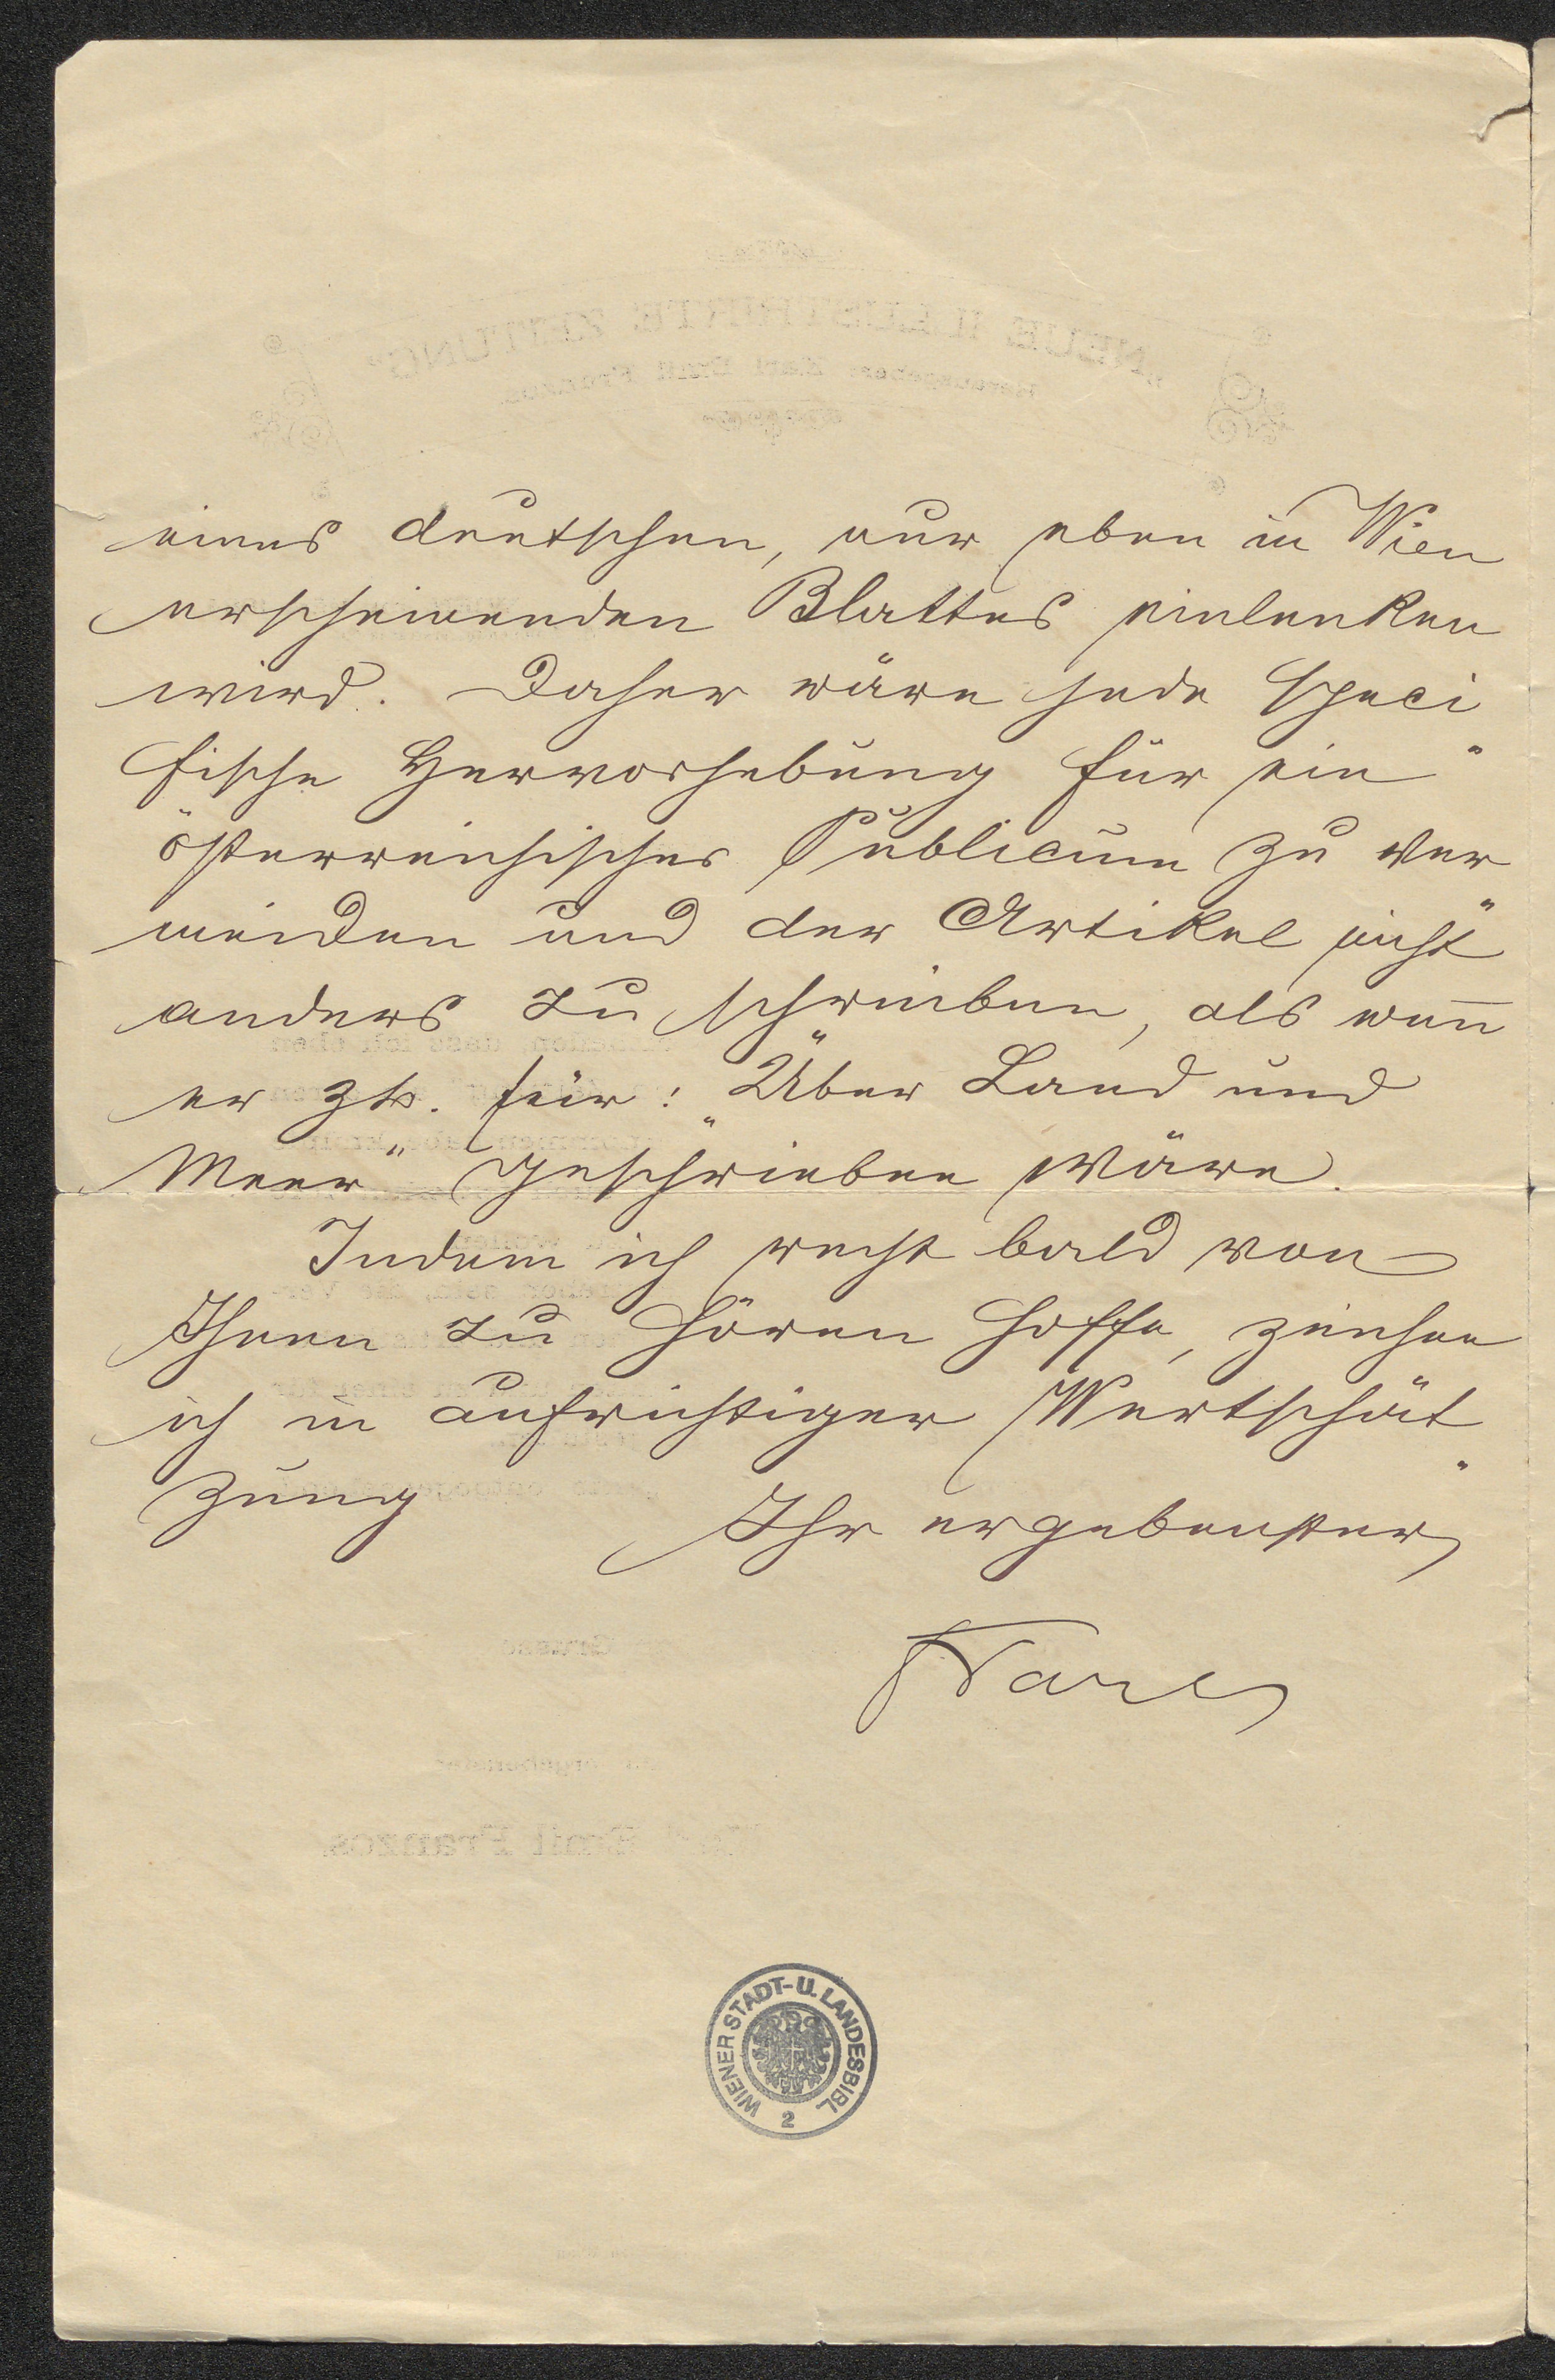 eines deutschen, nur eben in Wien
erscheinenden Blattes einlenken
wird. Daher wäre jede speci
fische Hervorhebung für ein
österreichisches Publicum zu ver
meiden und der Artikel nicht
anders zu schreiben, als wen̅
er zb. für: „Über Land und
Meer“ geschrieben wäre.
Indem ich recht bald von
Ihnen zu hören hoffe, zeichne
ich in aufrichtiger Wertschät
zung
Ihr ergebenster
Franzos
WIENER STADT- U. LANDESBIBL
2